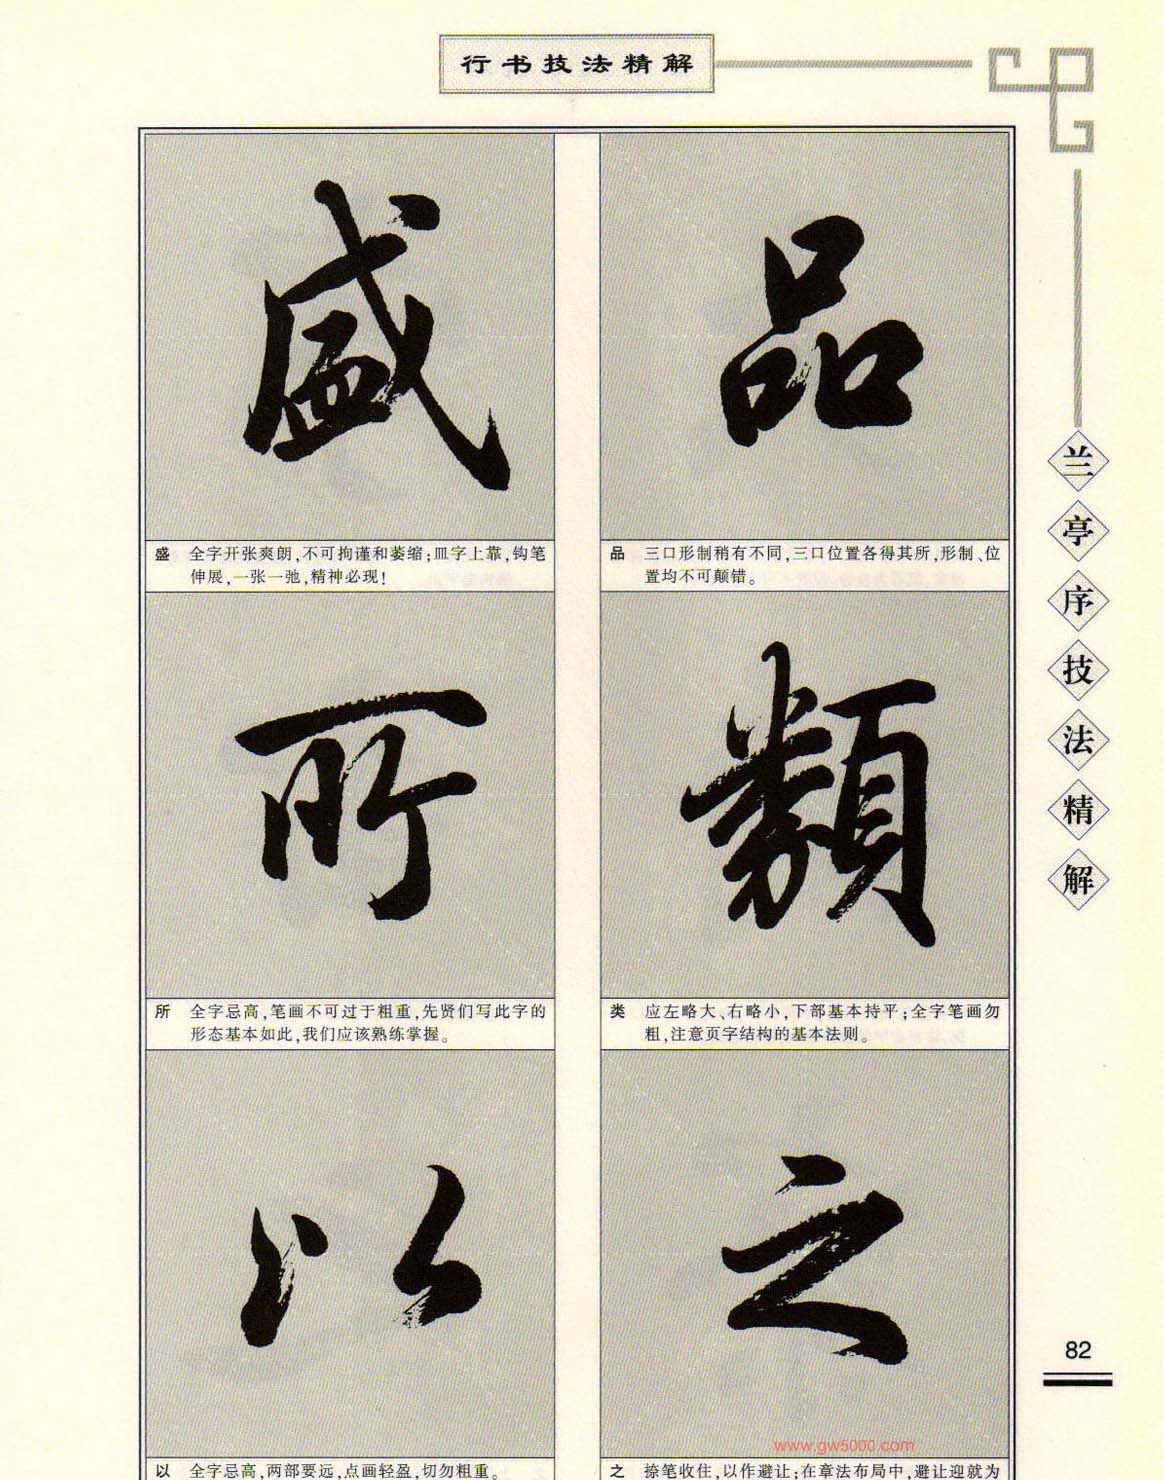 行书技法精解
品
品 三口形制稍有不同,三口位置各得其所,形制、位
置均不可颠错。
類
类 应左略大、右略小,下部基本持平;全字笔画勿
粗,注意页字结构的基本法则。
之
之 捺笔收住,以作避让;在章法布局中,避让迎就为
盛
盛 全字开张爽朗,不可拘谨和萎缩;皿字上靠,钩笔
伸展,一张一弛,精神必现!
所
所 全字忌高,笔画不可过于粗重,先贤们写此字的
形态基本如此,我们应该熟练掌握。
以
以 全字忌高,两部要远,点画轻盈,切勿粗重。
兰亭序技法精解
82
www.gw5000.com